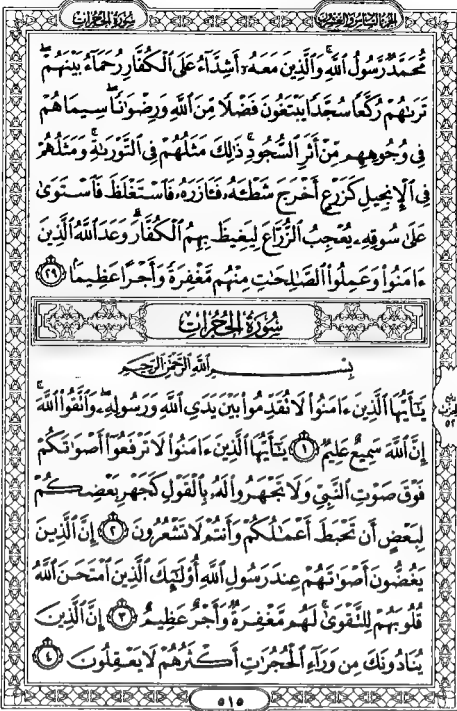 سُورَةُ الحُجُرَاتِ
الجزء السادس والعشرون
مُّحَمَّدٌ رَّسُولُ ٱللَّهِ وَٱلَّذِينَ مَعَهُۥٓ أَشِدَّآءُ عَلَى ٱلْكُفَّارِ رُحَمَآءُ بَيْنَهُمْ
تَرَىٰهُمْ رُكَّعًا سُجَّدًا يَبْتَغُونَ فَضْلًا مِّنَ ٱللَّهِ وَرِضْوَٰنًا سِيمَاهُمْ
فِى وُجُوهِهِم مِّنْ أَثَرِ ٱلسُّجُودِ ذَٰلِكَ مَثَلُهُمْ فِى ٱلتَّوْرَىٰةِ وَمَثَلُهُمْ
فِى ٱلْإِنجِيلِ كَزَرْعٍ أَخْرَجَ شَطْـَٔهُۥ فَـَٔازَرَهُۥ فَٱسْتَغْلَظَ فَٱسْتَوَىٰ
عَلَىٰ سُوقِهِۦ يُعْجِبُ ٱلزُّرَّاعَ لِيَغِيظَ بِهِمُ ٱلْكُفَّارَ وَعَدَ ٱللَّهُ ٱلَّذِينَ
ءَامَنُوا۟ وَعَمِلُوا۟ ٱلصَّٰلِحَٰتِ مِنْهُم مَّغْفِرَةً وَأَجْرًا عَظِيمًۢا ٢٩
سُورَةُ الحُجُرَاتِ
بِسْمِ ٱللَّهِ ٱلرَّحْمَٰنِ ٱلرَّحِيمِ
يَٰٓأَيُّهَا ٱلَّذِينَ ءَامَنُوا۟ لَا تُقَدِّمُوا۟ بَيْنَ يَدَىِ ٱللَّهِ وَرَسُولِهِۦ وَٱتَّقُوا۟ ٱللَّهَ
إِنَّ ٱللَّهَ سَمِيعٌ عَلِيمٌ ١ يَٰٓأَيُّهَا ٱلَّذِينَ ءَامَنُوا۟ لَا تَرْفَعُوٓا۟ أَصْوَٰتَكُمْ
فَوْقَ صَوْتِ ٱلنَّبِىِّ وَلَا تَجْهَرُوا۟ لَهُۥ بِٱلْقَوْلِ كَجَهْرِ بَعْضِكُمْ
لِبَعْضٍ أَن تَحْبَطَ أَعْمَٰلُكُمْ وَأَنتُمْ لَا تَشْعُرُونَ ٢ إِنَّ ٱلَّذِينَ
يَغُضُّونَ أَصْوَٰتَهُمْ عِندَ رَسُولِ ٱللَّهِ أُو۟لَٰٓئِكَ ٱلَّذِينَ ٱمْتَحَنَ ٱللَّهُ
قُلُوبَهُمْ لِلتَّقْوَىٰ لَهُم مَّغْفِرَةٌ وَأَجْرٌ عَظِيمٌ ٣ إِنَّ ٱلَّذِينَ
يُنَادُونَكَ مِن وَرَآءِ ٱلْحُجُرَٰتِ أَكْثَرُهُمْ لَا يَعْقِلُونَ ٤
٥١٥